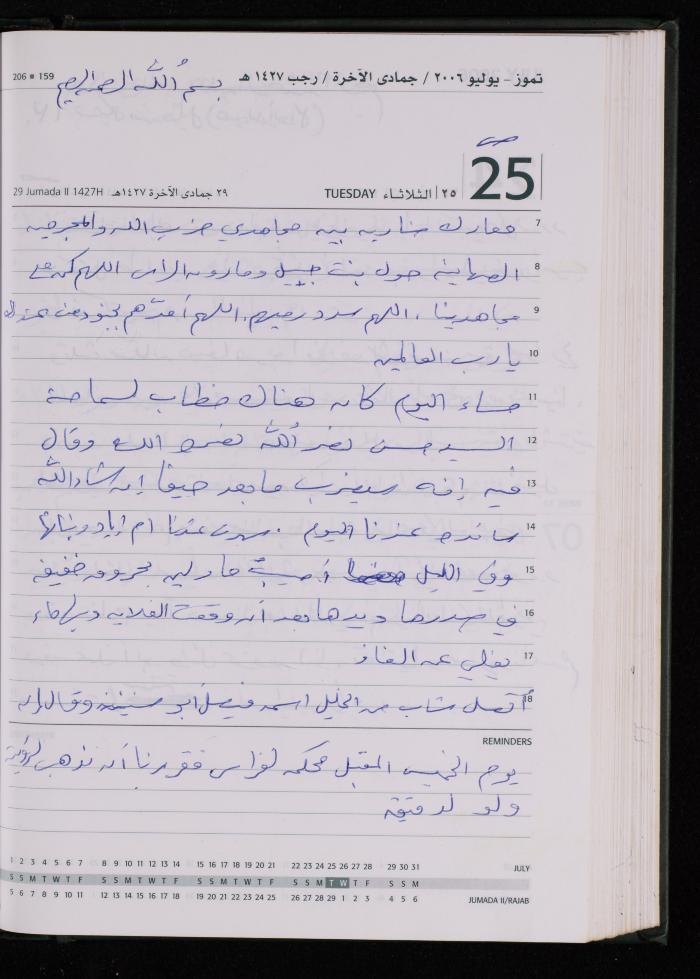 206 ■ 159 تموز - يوليو ٢٠٠٦ / جمادى الآخرة / رجب ١٤٢٧ هـ
بسم الله الرحمن الرحيم
25
29 Jumada II 1427H ٢٩ جمادى الآخرة ١٤٢٧هـ TUESDAY ٢٥ الثلاثاء
7 معارك ضارية بين مجاهدي حزب الله والمجرمين
8 الصهاينة حول بنت جبيل ومارون الراس اللهم كن مع
9 مجاهدينا . اللهم سدد رميهم . اللهم أمدهم بجنود من عندك
10 يا رب العالمين
11 مساء اليوم كان هناك خطاب لسماحة
12 السيد حسن نصر الله نصره الله وقال
13 فيه إنه سيضرب ما بعد حيفا إن شاء الله
14 ساندرا عندنا اليوم . سهرت عندنا ام إياد وبناتها
15 وفي الليل أصيبت مادلين بحروق خفيفة
16 في صدرها ويدها بعد أن وقعت الغلاية وبها ماء
17 يغلي عن الغاز
18 أتصل شاب من الخليل اسمه فيصل أبو سنينة وقال إن
REMINDERS
يوم الخميس المقبل محكمة لفراس فقررنا أن نذهب لرؤيته
ولو لدقيقة
1 2 3 4 5 6 7 8 9 10 11 12 13 14 15 16 17 18 19 20 21 22 23 24 25 26 27 28 29 30 31 JULY
S S M T W T F S S M T W T F S S M T W T F S S M T W T F S S M
5 6 7 8 9 10 11 12 13 14 15 16 17 18 19 20 21 22 23 24 25 26 27 28 29 1 2 3 4 5 6 JUMADA II/RAJAB